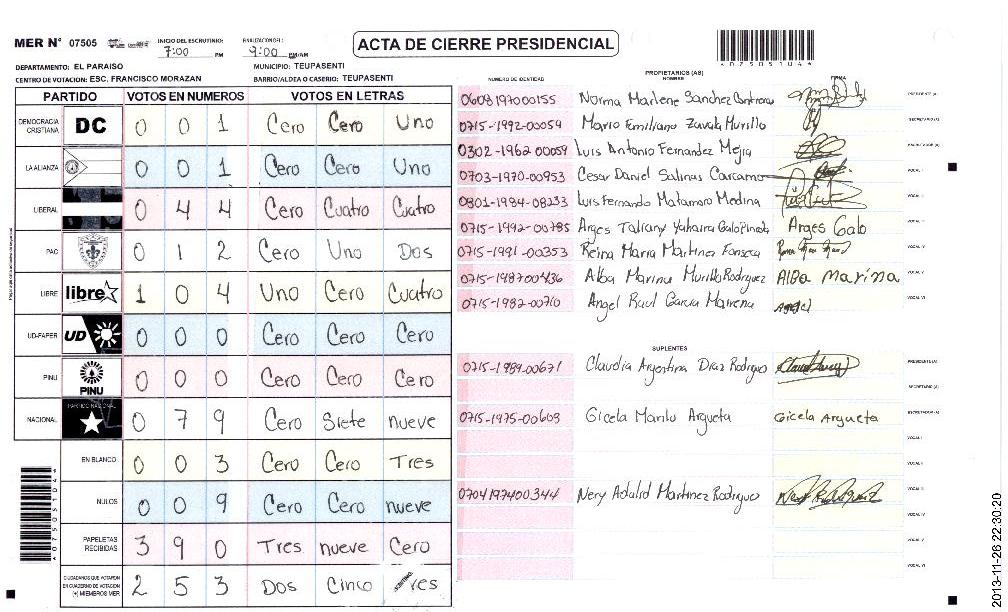 MER N° 07505
INICIO DEL ESCRUTINIO:
7:00 PM
FINALIZACION DEL:
9:00 PM/AM
ACTA DE CIERRE PRESIDENCIAL
4075051044
DEPARTAMENTO: EL PARAISO
MUNICIPIO: TEUPASENTI
CENTRO DE VOTACION: ESC. FRANCISCO MORAZAN
BARRIO/ALDEA O CASERIO: TEUPASENTI
PARTIDO VOTOS EN NUMEROS VOTOS EN LETRAS
DEMOCRACIA CRISTIANA DC 0 0 1 Cero Cero Uno
LA ALIANZA 0 0 1 Cero Cero Uno
LIBERAL 0 4 4 Cero Cuatro Cuatro
PAC 0 1 2 Cero Uno Dos
LIBRE libre 1 0 4 Uno Cero Cuatro
UD-FAPER UD 0 0 0 Cero Cero Cero
PINU PINU 0 0 0 Cero Cero Cero
NACIONAL PARTIDO NACIONAL 0 7 9 Cero Siete nueve
EN BLANCO 0 0 3 Cero Cero Tres
NULOS 0 0 9 Cero Cero nueve
PAPELETAS RECIBIDAS 3 9 0 Tres nueve Cero
CIUDADANOS QUE VOTARON EN CUADERNO DE VOTACION (+) MIEMBROS MER 2 5 3 Dos Cinco Tres
4075051044
NUMERO DE IDENTIDAD PROPIETARIOS (AS) NOMBRE FIRMA
0608197000155 Norma Marlene Sanchez Contreras PRESIDENTE (A)
0715-1992-00054 Mario Emiliano Zavala Murillo SECRETARIO (A)
0302-1962-00059 Luis Antonio Fernandez Mejia ESCRUTADOR (A)
0703-1970-00953 Cesar Daniel Salinas Carcamo VOCAL I
0801-1984-08233 Luis Fernando Matamoro Medina VOCAL II
0715-1992-00785 Arges Galo VOCAL III
0715-1991-00353 Reina Maria Martinez Fonseca VOCAL IV
0715-198700436 Alba Marina Murillo Rodriguez Alba Marina VOCAL V
0715-1982-00710 Angel Raul Garcia Mairena Angel VOCAL VI
SUPLENTES
0715-1989-00671 Claudia Argentina Diaz Rodrigue PRESIDENTE (A)
SECRETARIO (A)
0715-1975-00603 Gicela Marilu Argueta Gicela Argueta ESCRUTADOR (A)
VOCAL I
VOCAL II
0704197400344 Nery Adalid Martinez Rodriguez VOCAL III
VOCAL IV
VOCAL V
VOCAL VI
2013-11-26 22:30:20